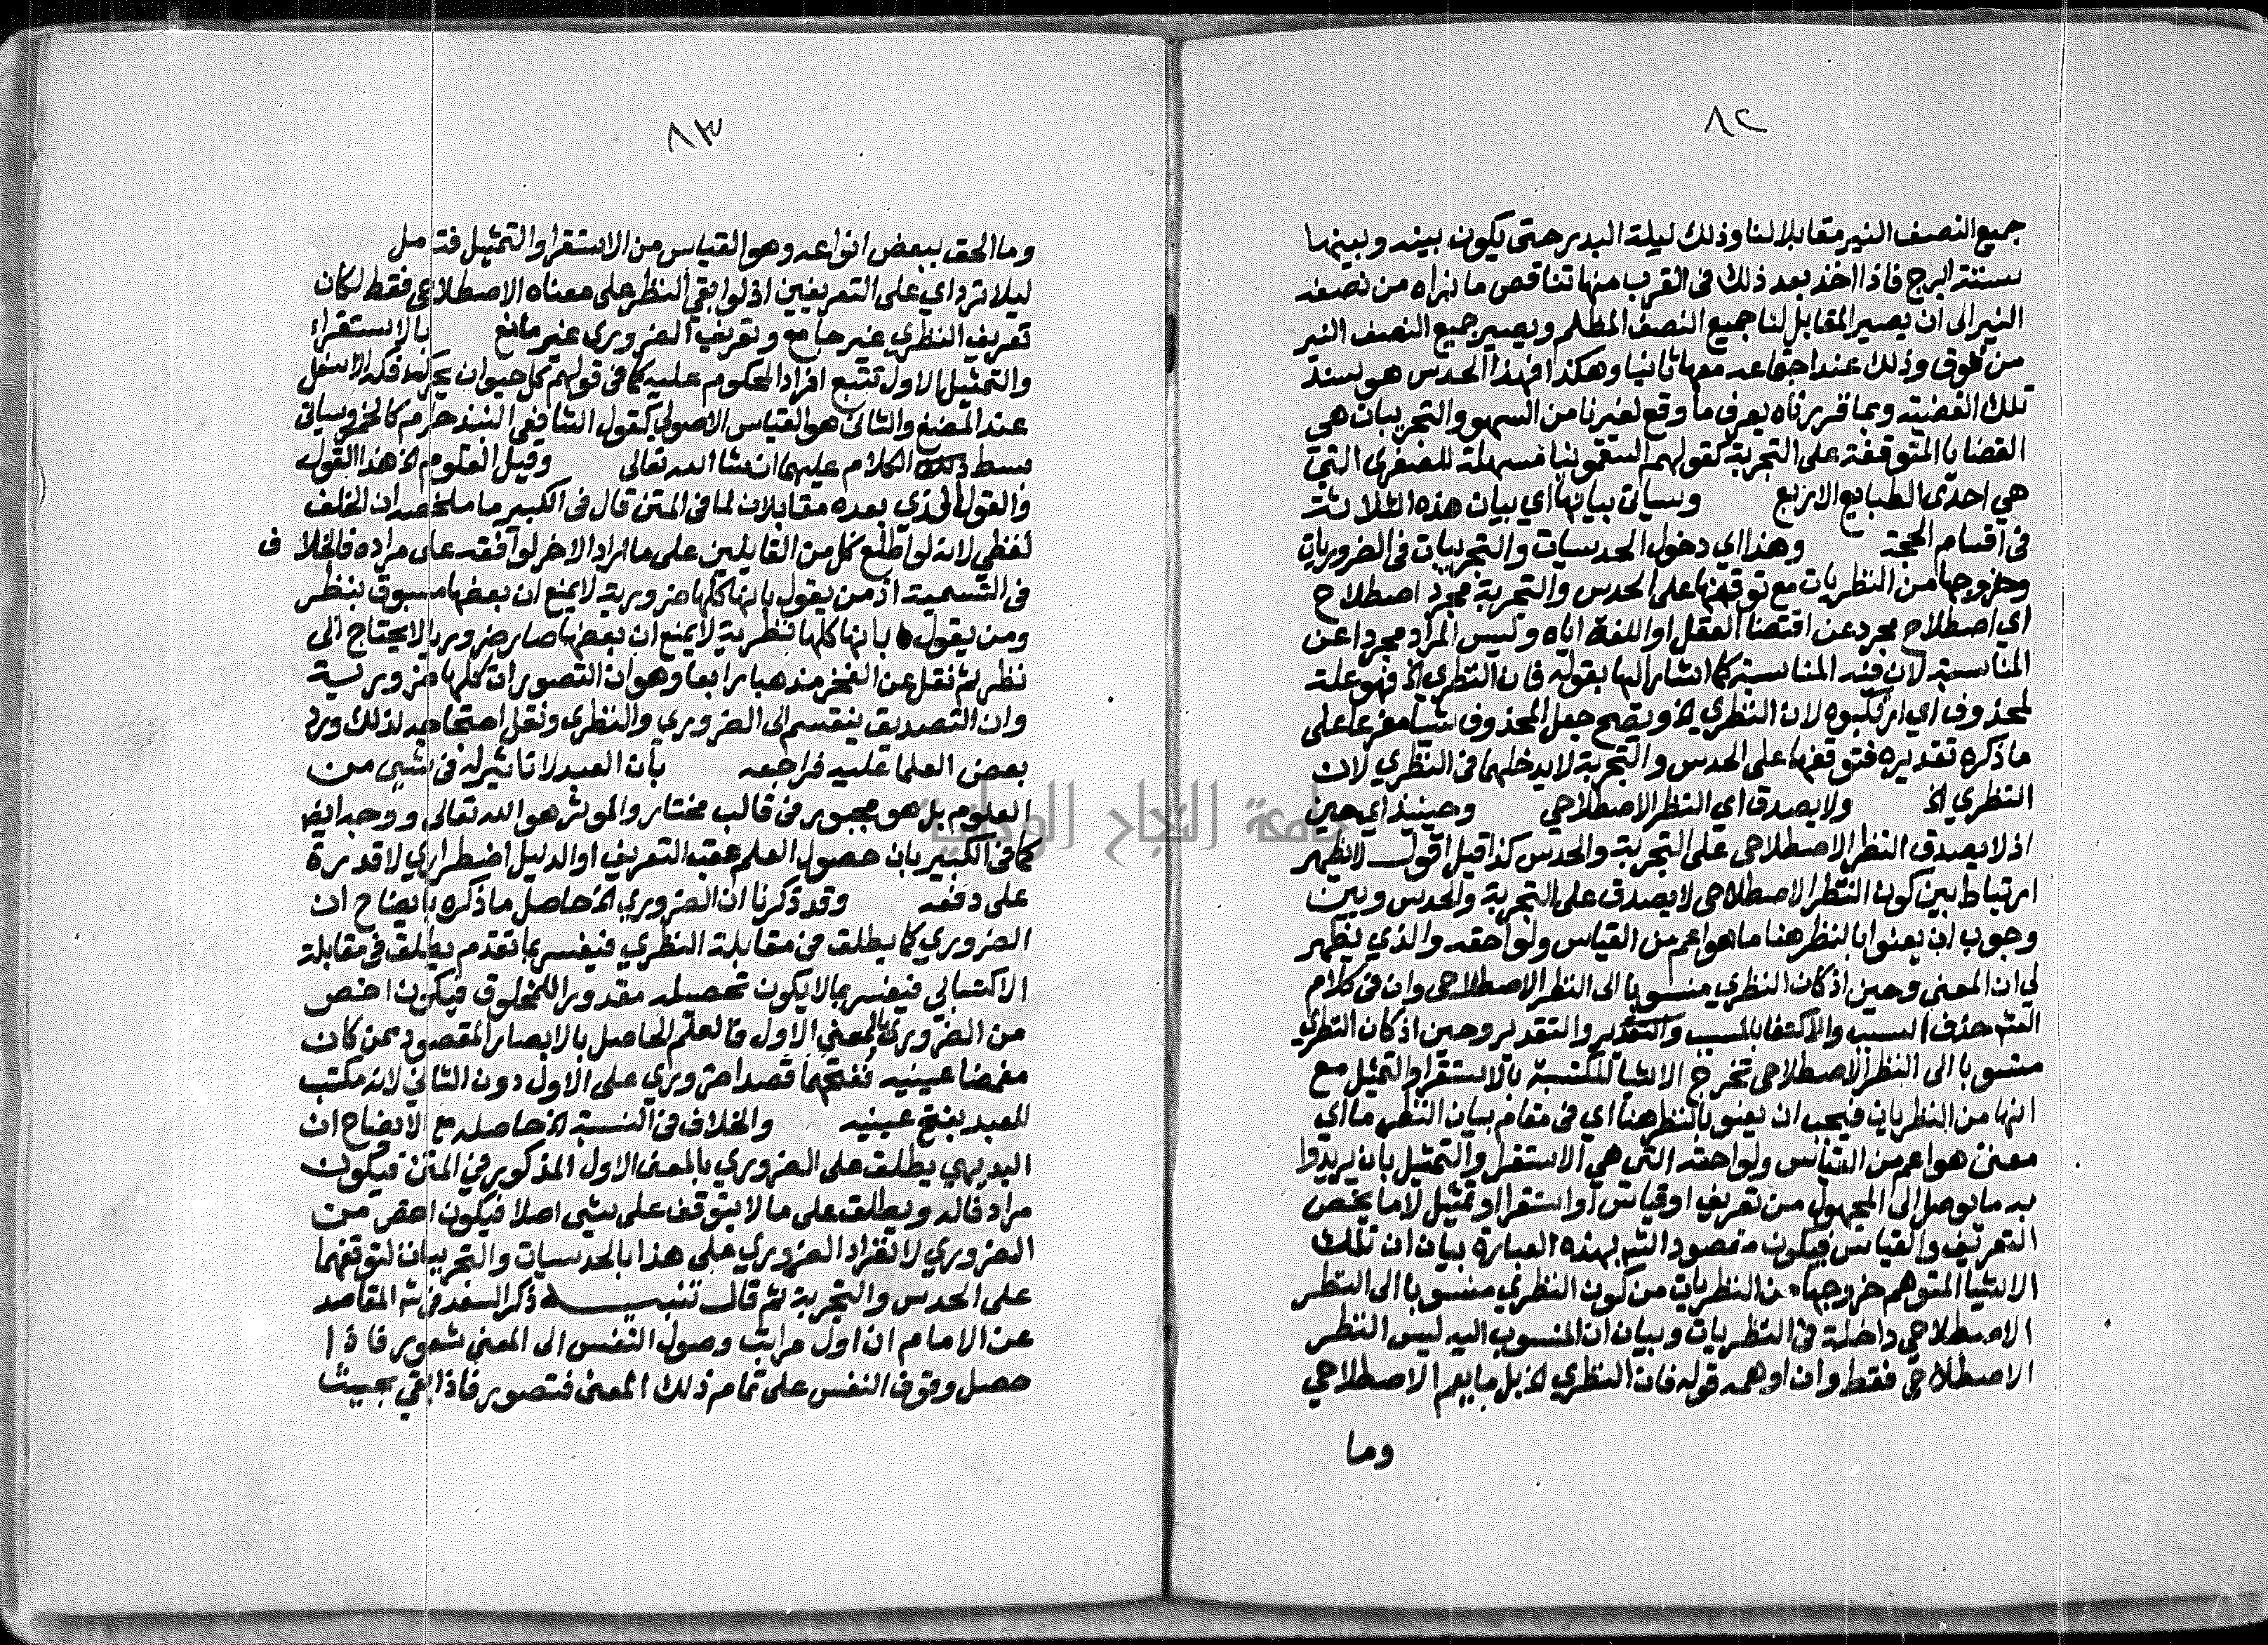 ٨٢
جميع النصف النير مقابلا لنا وذلك ليلة البدر حتى يكون بينه وبينها
ستة ابرج فاذا اخذ بعد ذلك في القرب منها تناقص ما نراه من نصفه
النير الى ان يصير المقابل لنا جميع النصف المظلم ويصير جميع النصف النير
من فوق وذلك عند اجتماعه معها ثانيا وهكذا فهذا الحدس هو سند
تلك القضية وبما قررناه يعرف ما وقع لغيرنا من السهو والتجربيات هي
القضايا المتوقفة على التجربة كقولهم السقمونيا مسهلة للصفرى التي
هي احدى الطبايع الاربع وسياتى بيانها اي بيان هذه الثلاثة
في اقسام الحجة وهذا اي دخول الحدسيات والتجربيات في الضروريات
وخروجها من النظريات مع توقفها على الحدس والتجربة مجرد اصطلاح
اي اصطلاح مجرد عن اقتضا العقل او اللغة اياه وليس المراد مجردا عن
المناسبة لان فيه المناسبة كما اشار اليها بقوله فان النظري الخ فهو علة
لمحذوف اي ارتكبوه لان النظري الخ ويصح جعل المحذوف شيئا مفرعا على
ما ذكره تقديره فتوقفها على الحدس والتجربة لا يدخلهما في النظري لان
النظري الخ ولا يصدق اي النظر الاصطلاحي وحينئذ اي حين
اذ لا يصدق النظر الاصطلاحى على التجربة والحدس كذا قيل اقول لا يظهر
ارتباط بين كون النظر الاصطلاحى لا يصدق على التجربة والحدس وبين
وجوب ان يعنوا بالنظر هنا ما هو اعم من القياس ولواحقه والذي يظهر
لي ان المعنى وحين اذ كان النظري منسوبا الى النظر الاصطلاحى وان في كلام
الش حذف السبب والاكتفا بالمسبب والتقدير وحين اذ كان النظري
منسوبا الى النظر الاصطلاحى تخرج الاشيا المكتسبة بالاستقرا والتمثيل مع
انها من النظريات فيجب ان يعنو بالنظر هنا اي في مقام بيان النظر ما اي
معنى هو اعم من القياس ولواحقه التى هي الاستقرا والتمثيل بان يريدوا
به ما يوصل الى المجهول من تعريف او قياس او استقرا او تمثيل لا ما يخص
التعريف والقياس فيكون مقصود الش بهذه العبارة بيان ان تلك
الاشيا المتوهم خروجها من النظريات من كون النظري منسوبا الى النظر
الاصطلاحي داخلة في النظريات وبيان ان المنسوب اليه ليس النظر
الاصطلاحي فقط وان اوهمه قوله فان النظري الخ بل ما يعم الاصطلاحي
وما
٨٣
وما الحق ببعض انواعه وهو القياس من الاستقرا والتمثيل فتامل
ليلا ترد اي على التعريفين اذ لو ابقي النظر على معناه الاصطلاحي فقط لكان
تعريف النظري غير جامع وتعريف الضروري غير مانع بالاستقراء
والتمثيل الاول تتبع افراد المحكوم عليه كما في قولهم كل حيوان يحرك فكه الاسفل
عند المضغ والثانى هو القياس الاصولي كقول الشافعي النبيذ حرام كالخمر وسياتى
بسط ذلك الكلام عليهما ان شا الله تعالى وقيل العلوم الخ هذا القول
والقول الذي بعده مقابلان لما في المتن قال في الكبير ما ملخصه ان الخلف
لفظي لانه لو اطلع كل من القايلين على ما اراد الاخر لوافقه على مراده فالخلاف
في التسمية اذ من يقول بانها كلها ضرورية لا يمنع ان بعضها مسبوق بنظر
ومن يقول بانها كلها نظرية لا يمنع ان بعضها صار ضروريا لا يحتاج الى
نظر ثم نقل عن الفخر مذهبا رابعا وهو ان التصورات كلها ضرورية
وان التصديق ينقسم الى الضروري والنظري ونقل احتجاجه لذلك ورد
بعض العلما عليه فراجعه بان العبد لا تاثير له في شي من
العلوم بل هو مجبور في قالب مختار والموثر هو الله تعالى ووجه ايضا
كما في الكبير بان حصول العلم عقب التعريف او الدليل اضطراري لا قدرة
على دفعه وقد ذكرنا ان الضروري الخ حاصل ما ذكره بايضاح ان
الضروري كما يطلق في مقابلة النظري فيفسر بما تقدم يطلق في مقابلة
الاكتسابي فيفسر بما لا يكون تحصيله مقدورا للمخلوق فيكون اخص
من الضروري بالمعنى الاول فالعلم الحاصل بالابصار المقصود ممن كان
مغمضا عينيه ففتحهما قصدا ضروري على الاول دون الثاني لانه مكتسب
للعبد بفتح عينيه والخلاف في النسبة الخ حاصله مع الايضاح ان
البديهي يطلق على الضروري بالمعنى الاول المذكور في المتن فيكون
مرادفا له ويطلق على ما لا يتوقف على شي اصلا فيكون اخص من
الضروري لانفراد الضروري على هذا بالحدسيات والتجربيات لتوقفهما
على الحدس والتجربة ثم قال تنبيه ذكر السعد في ش المقاصد
عن الامام ان اول مراتب وصول النفس الى المعنى شعور فاذا
حصل وقوف النفس على تمام ذلك المعنى فتصور فاذا بقي بحيث
جامعة النجاح الوطنية